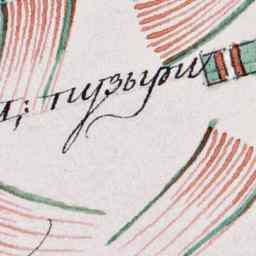 пузыри